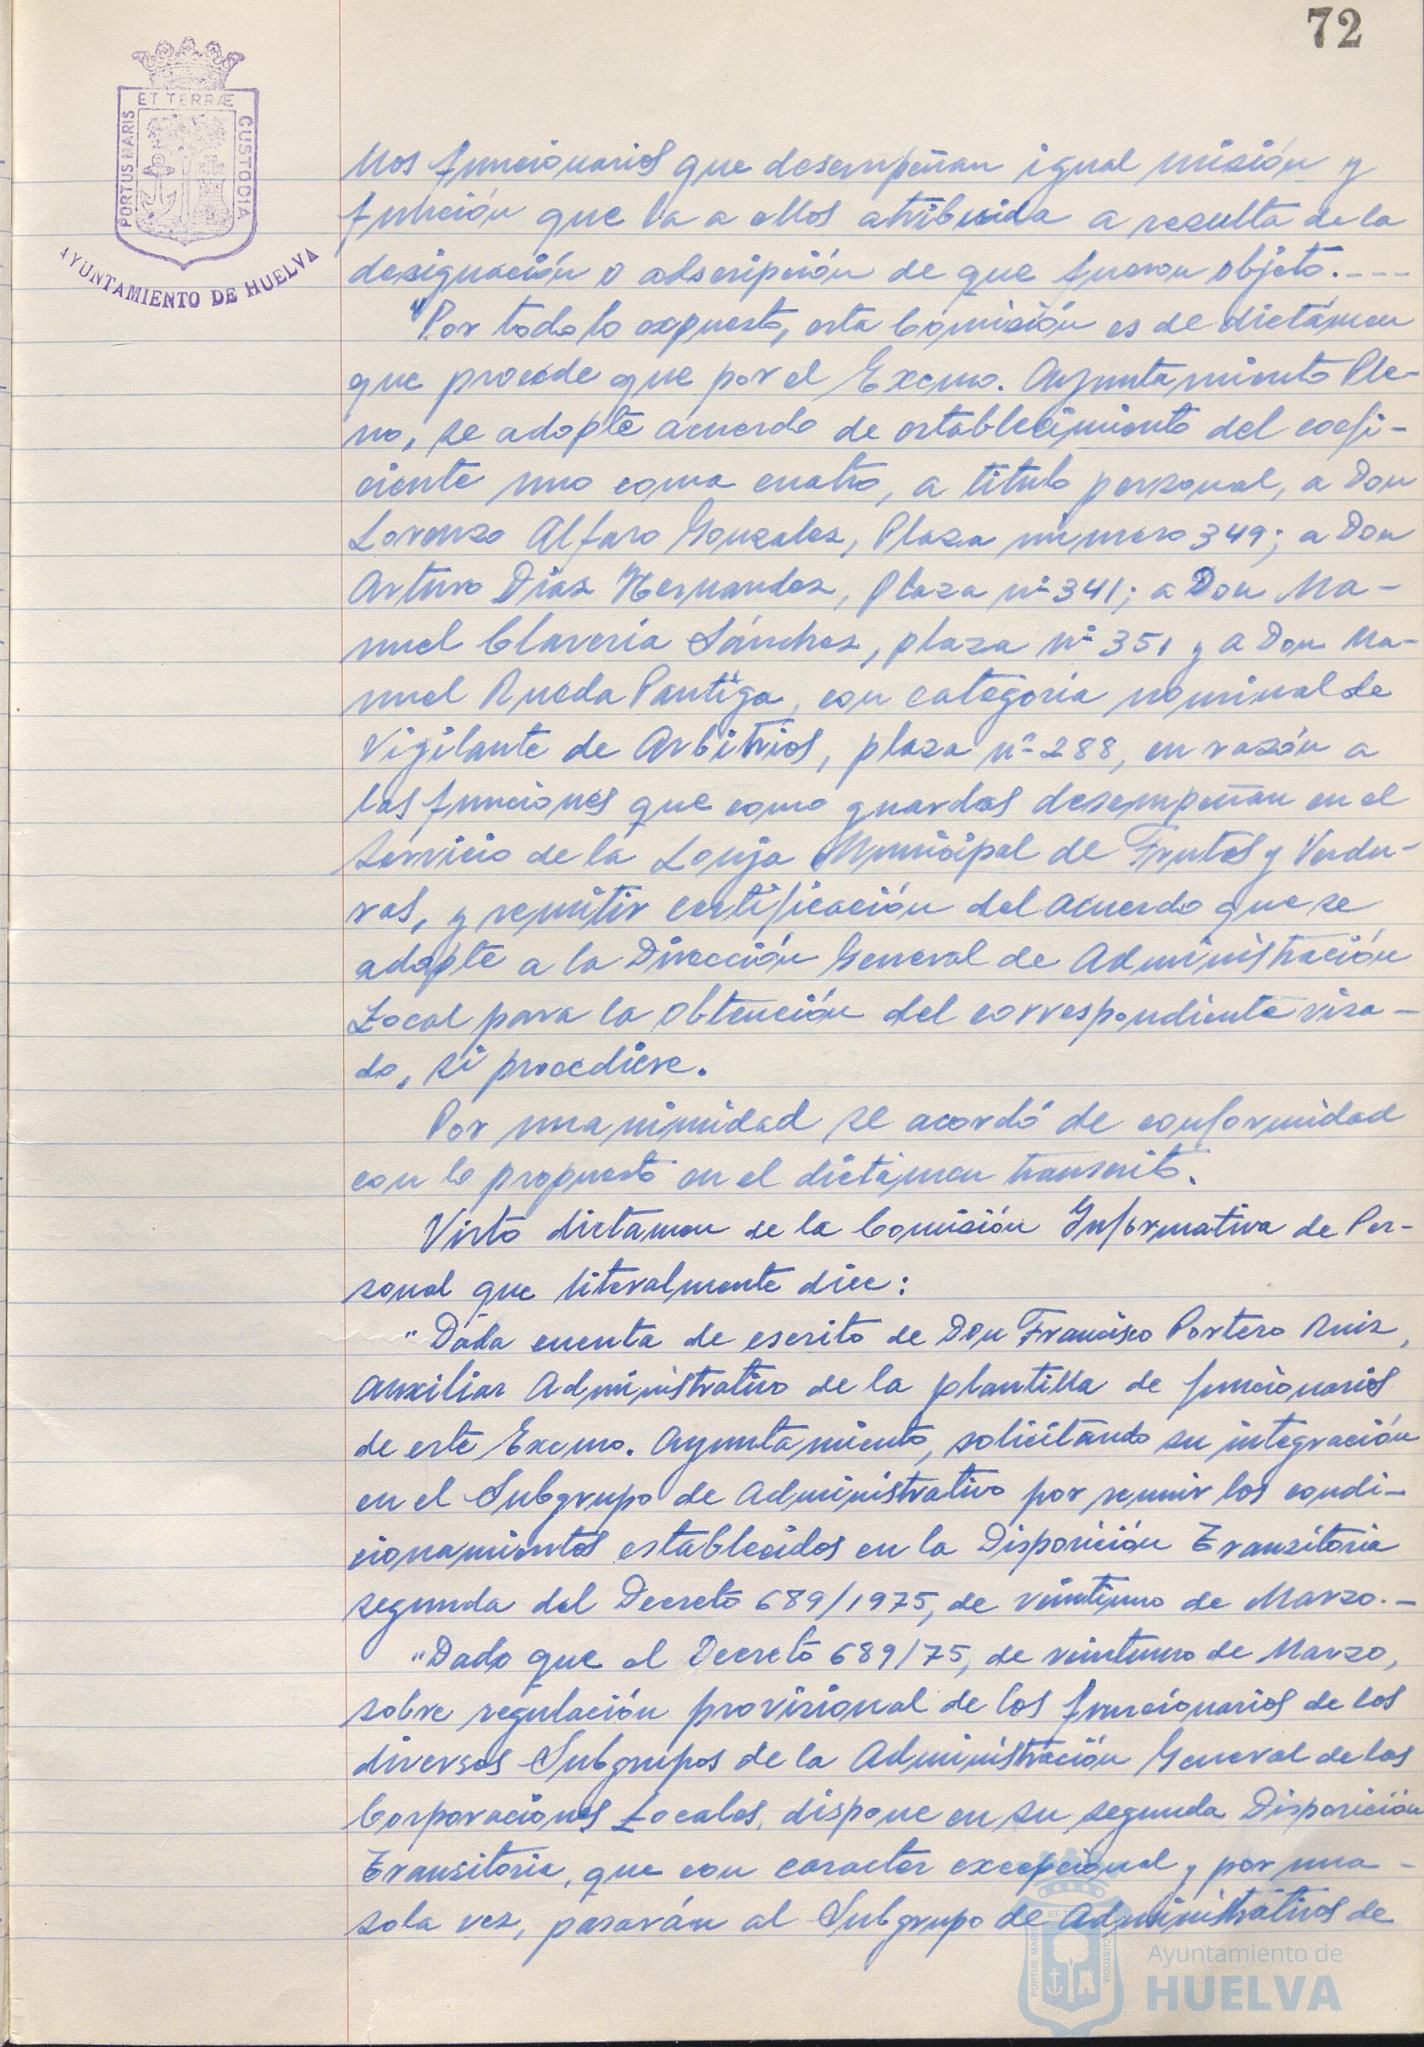 72
ET TERRÆ
PORTUS MARIS
CUSTODIA
AYUNTAMIENTO DE HUELVA
llos funcionarios que desempeñan igual misión y
función que la a ellos atribuida a resulta de la
designación o adscripción de que fueron objeto.----
"Por todo lo expuesto, esta Comisión es de dictámen
que procede que por el Excmo. Ayuntamiento Ple-
no, se adopte acuerdo de establecimiento del coefi-
ciente uno coma cuatro, a titulo personal, a Don
Lorenzo Alfaro Gonzalez, Plaza número 349; a Don
Arturo Diaz Hernandez, Plaza nº 341; a Don Ma-
nuel Claveria Sánchez, plaza nº 351 y a Don Ma-
nuel Rueda Pantiga, con categoria nominal de
Vigilante de Arbitrios, plaza nº 288, en razón a
las funciones que como guardas desempeñan en el
Servicio de la Lonja Municipal de Frutas y Verdu-
ras, y remitir certificación del acuerdo que se
adopte a la Dirección General de Administración
Local para la obtención del correspondiente visa-
do, si procediere.
Por unanimidad se acordó de conformidad
con lo propuesto en el dictámen transcrito.
Visto dictamen de la Comisión Informativa de Per-
sonal que literalmente dice:
"Dada cuenta de escrito de Don Francisco Portero Ruiz,
Auxiliar Administrativo de la plantilla de funcionarios
de este Excmo. Ayuntamiento, solicitando su integración
en el Subgrupo de Administrativo por reunir los condi-
cionamientos establecidos en la Disposición Transitoria
segunda del Decreto 689/1975, de veintiuno de Marzo.-
"Dado que el Decreto 689/75, de veintiuno de Marzo,
sobre regulación provisional de los funcionarios de los
diversos Subgrupos de la Administración General de las
Corporaciones Locales, dispone en su segunda Disposición
Transitoria, que con caracter excepcional y por una-
sola vez, pasarán al Subgrupo de Administrativos de
Ayuntamiento de
HUELVA